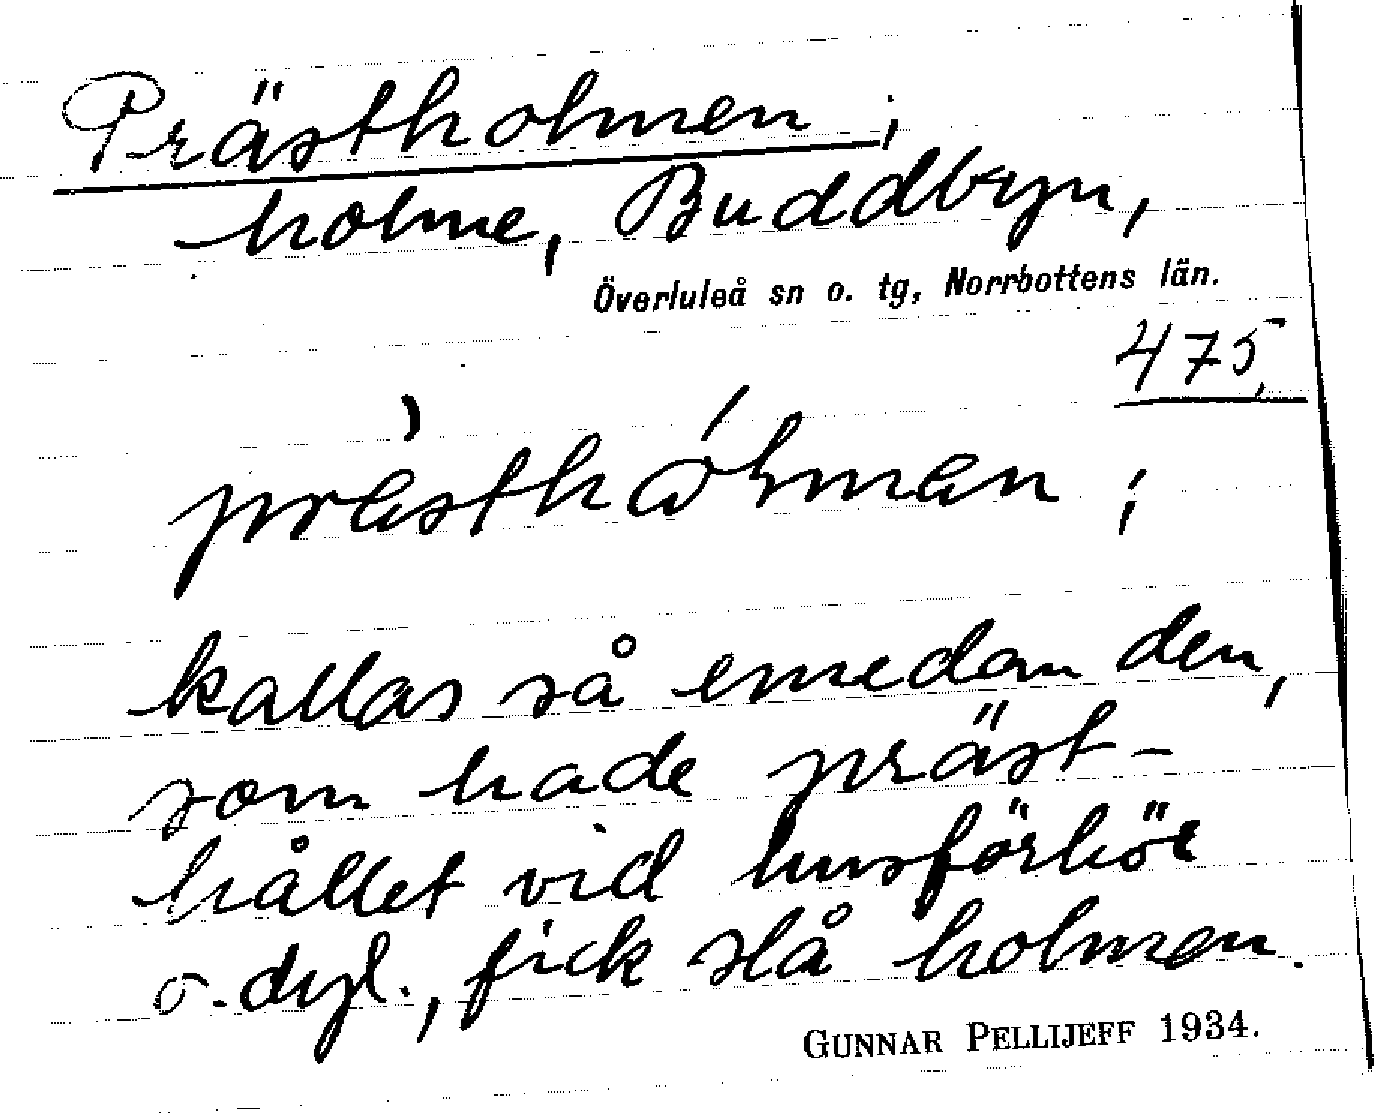 Prästholmen ;
holme, Buddbyn,
Överluleå sn o. tg, Norrbottens län.
475,
prästhólman ;
kallas så emedan den,
som hade präst-
hållet vid husförhör
o. dyl., fick slå holmen.
GUNNAR PELLIJEFF 1934.